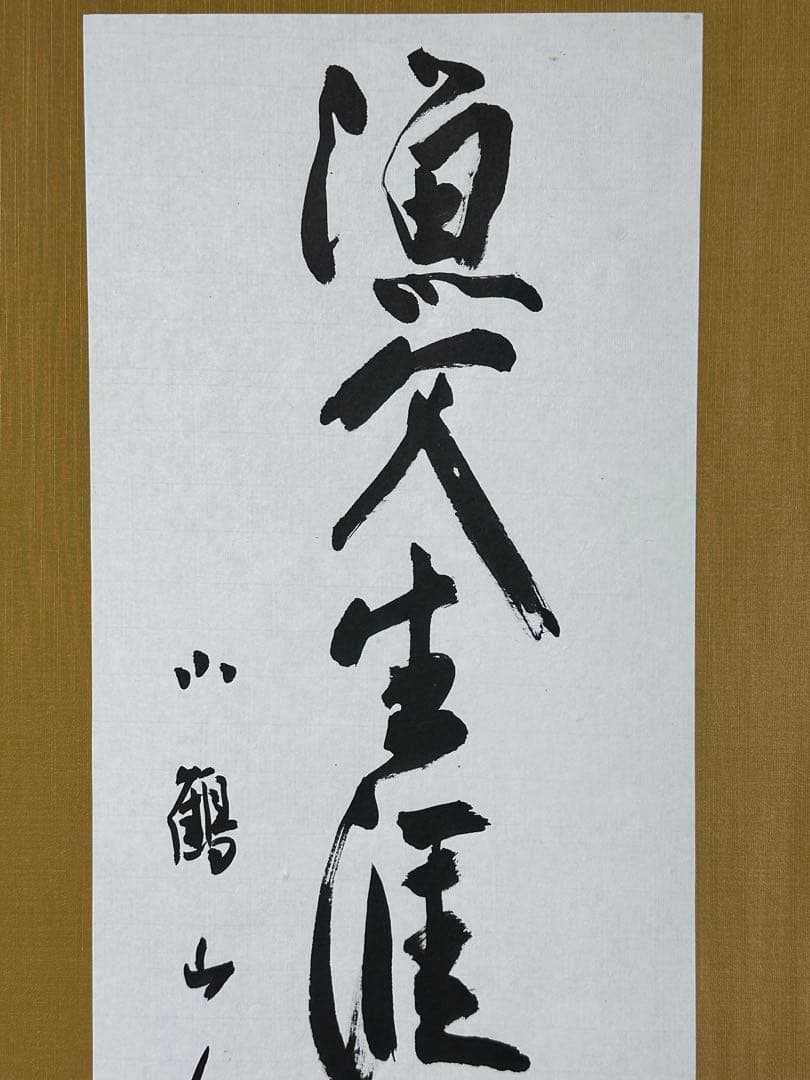 漁父生涯
小鶴山